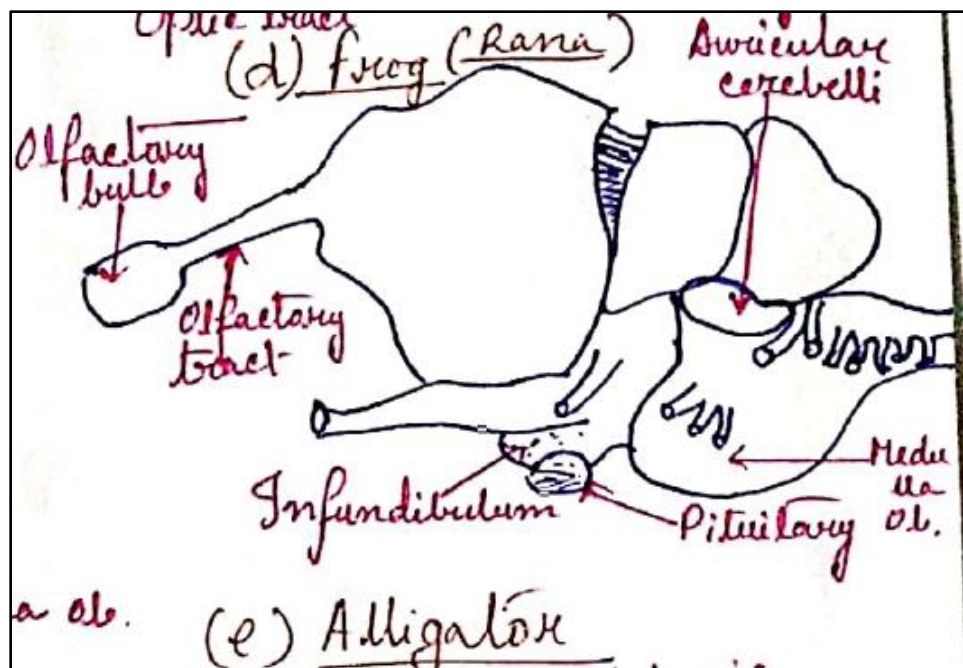 Optic tract
(d) frog (Rana)
Auricular
cerebelli
Olfactory
bulb
Olfactory
tract
Infundibulum
Pituitary
Medu
lla
Ob.
a Ob.
(e) Alligator